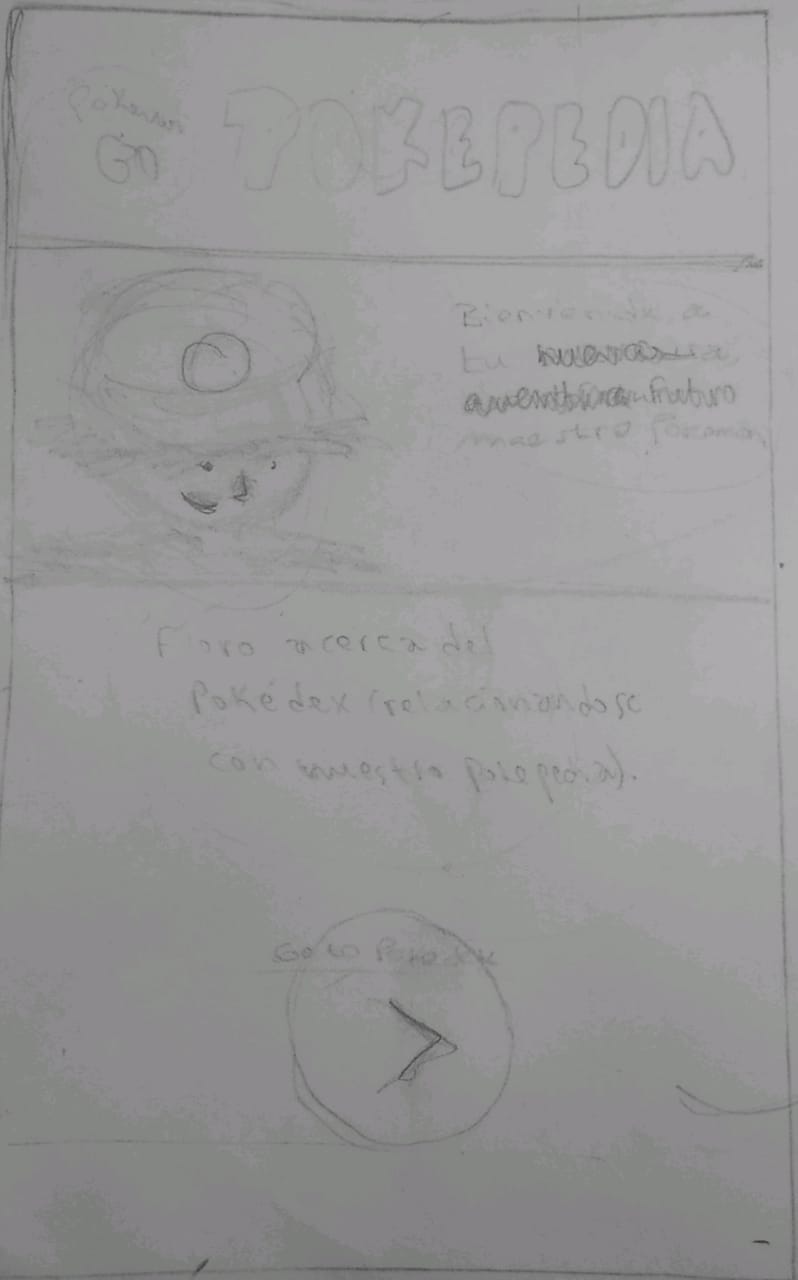 Pokemon
GO
POKEPEDIA
Bienvenido a
tu nueva
aventura futuro
maestro Pokemon
Floro acerca del
Pokédex (relacionandose
con nuestra pokepedia).
Go to Pokedex